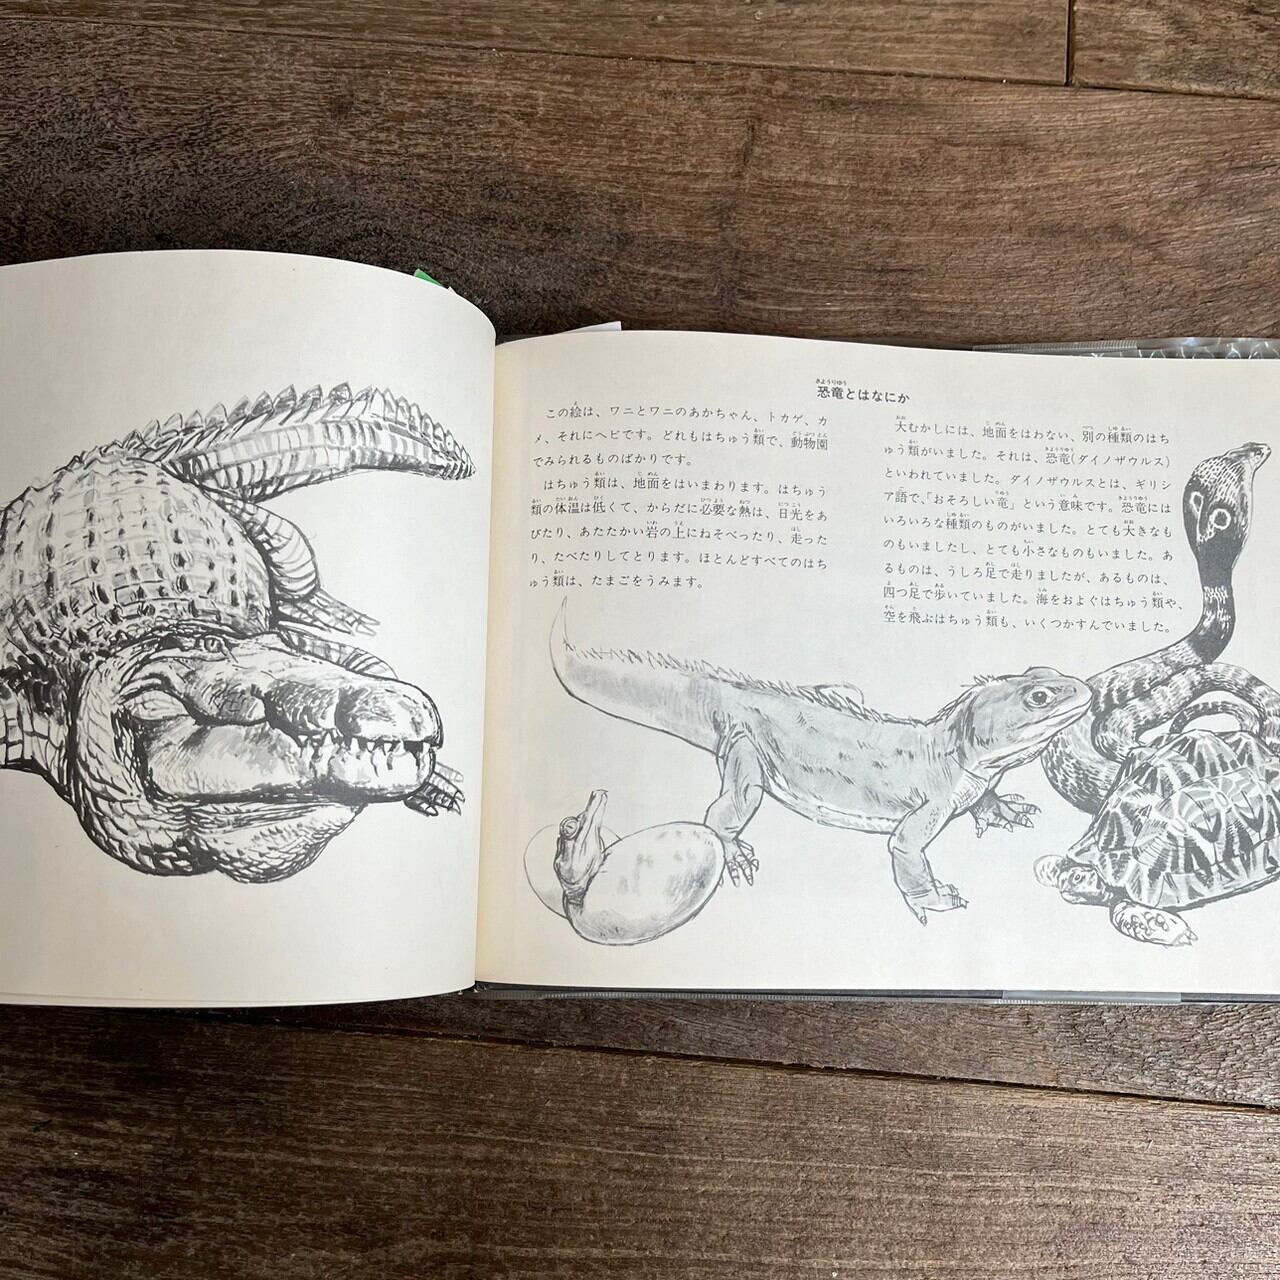 恐竜とはなにか
この絵は、ワニとワニのあかちゃん、トカゲ、カ
メ、それにヘビです。どれもはちゅう類で、動物園
でみられるものばかりです。
はちゅう類は、地面をはいまわります。はちゅう
類の体温は低くて、からだに必要な熱は、日光をあ
びたり、あたたかい岩の上にねそべったり、走った
り、たべたりしてとります。ほとんどすべてのはち
ゅう類は、たまごをうみます。
大むかしには、地面をはわない、別の種類のはち
ゅう類がいました。それは、恐竜(ダイノザウルス)
といわれていました。ダイノザウルスとは、ギリシ
ア語で、「おそろしい竜」という意味です。恐竜には
いろいろな種類のものがいました。とても大きなも
のもいましたし、とても小さなものもいました。あ
るものは、うしろ足で走りましたが、あるものは、
四つ足で歩いていました。海をおよぐはちゅう類や、
空を飛ぶはちゅう類も、いくつかすんでいました。